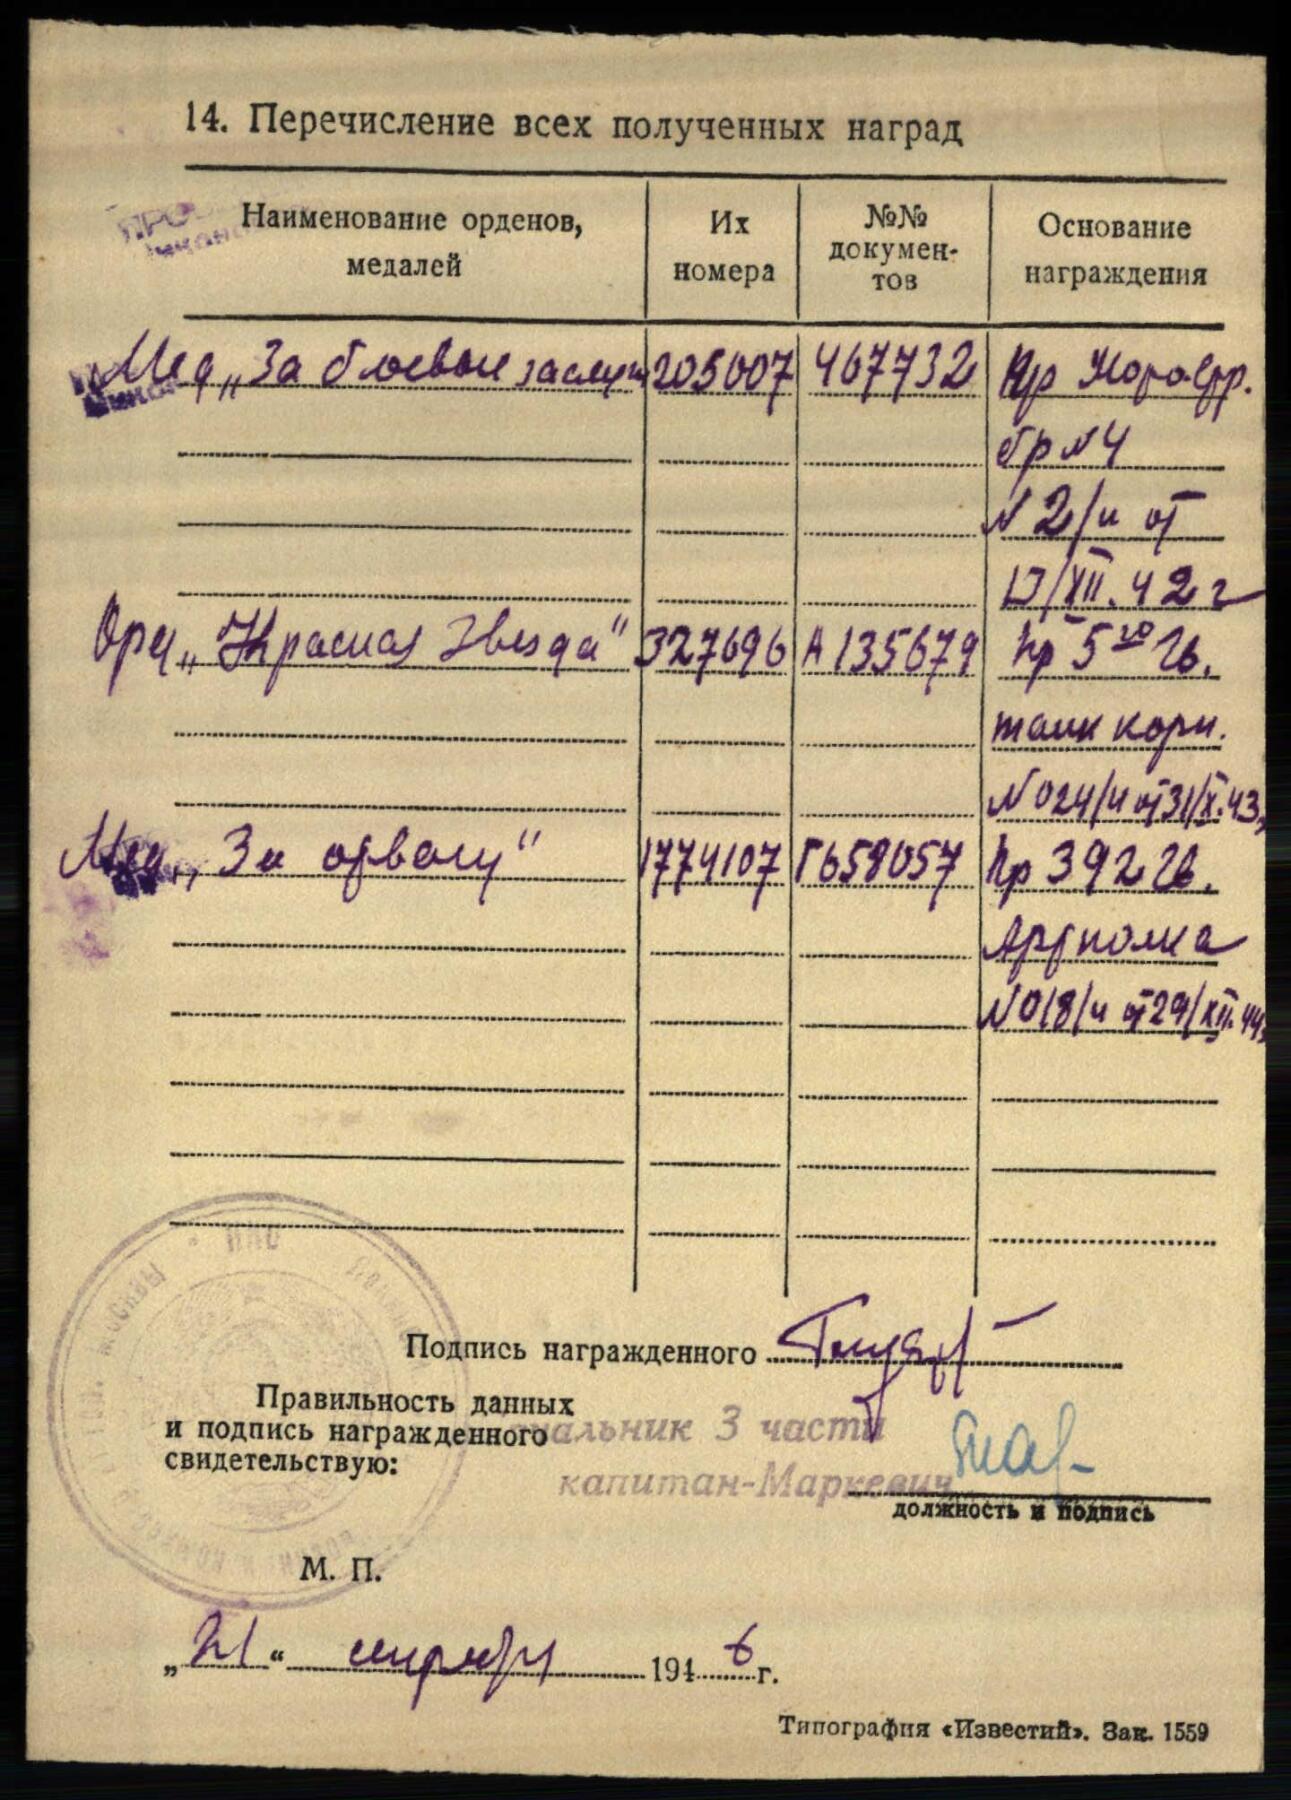 14. Перечисление всех полученных наград
Наименование орденов, медалей
Их номера
№№ докумен-тов
Основание награждения
Мед „За боевые заслуги 205007 467732 Пр
бр №4
N 2/н от
13/XII. 42 г
Орд „Красная Звезда" 327696 А 135679 Пр 5го Гв.
танк корп.
N 024/н от 31/X. 43
Мед „За отвагу" 1774107 Г658057 Пр 392 Гв.
Артполка
N 018/н от 29/XII. 44
Подпись награжденного
Правильность данных
и подпись награжденного
свидетельствую:
начальник 3 части
капитан-Маркевич
должность и подпись
М. П.
„21“ сентября 1946 г.
Типография «Известий». Зак. 1559